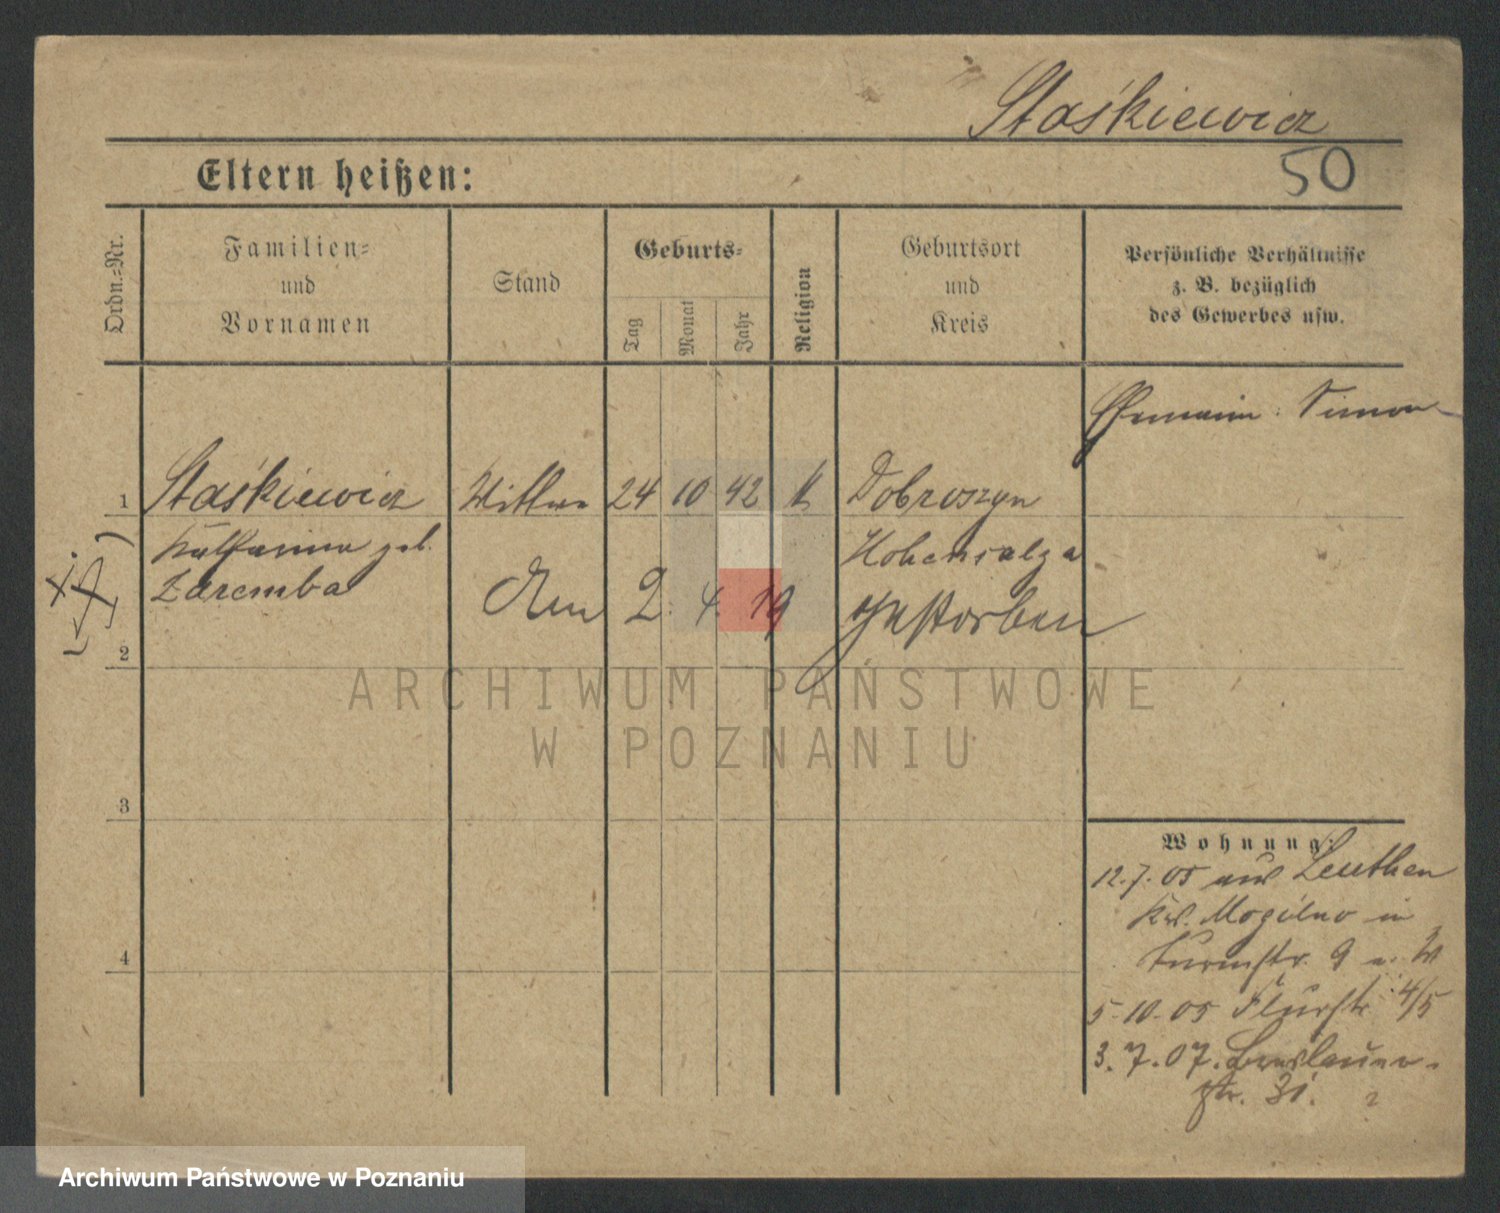 Staśkiewicz
50
Eltern heißen:
Ordn.=Nr.
Familien=
und
Vornamen
Stand
Geburts=
Tag
Monat
Jahr
Religion
Geburtsort
und
Kreis
Persönliche Verhältnisse
z. B. bezüglich
des Gewerbes usw.
Ehemann: Simon
1 Staśkiewicz Witwe 24 10 42 k Dobroszyn
Katharina geb. Hohensalza
Zaremba
Am 2. 4. 19 gestorben
2
ARCHIWUM PAŃSTWOWE
W POZNANIU
3
4
Wohnung:
12.7.05 aus Leuthen
Kr. Mogilno in
Turmstr. 9 b. W
5.10.05 Flurstr. 4/5
3.7.07. Breslauer-
str. 31.
Archiwum Państwowe w Poznaniu